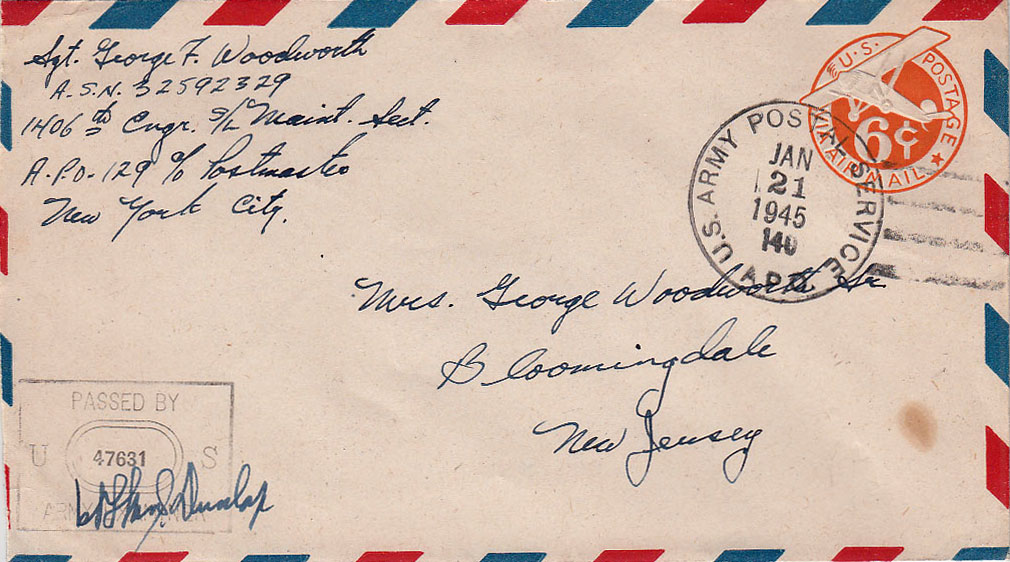 Sgt. George F. Woodworth
A.S.N. 32592329
1406th Engr. S/L Maint. Sect.
A.P.O. 129 c/o Postmaster
New York City.
U.S. POSTAGE
VIA AIR MAIL
6¢
U.S. ARMY POSTAL SERVICE
A.P.O.
JAN
21
1945
140
Mrs. George Woodworth Sr
Bloomingdale
New Jersey
PASSED BY
U 47631 S
ARMY EXAMINER
Dunlap